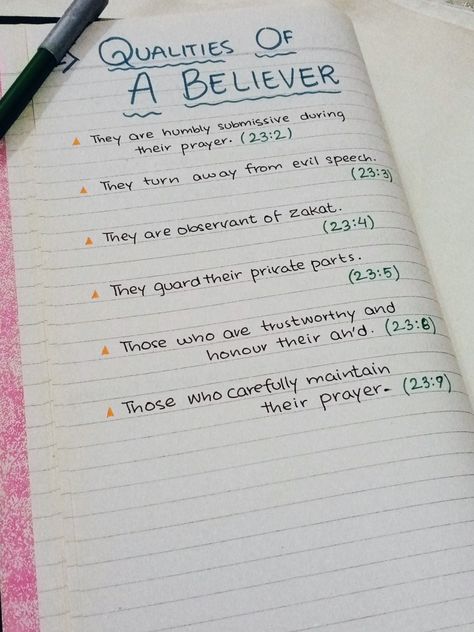 → QUALITIES OF
A BELIEVER
▲ They are humbly submissive during
their prayer. (23:2)
▲ They turn away from evil speech.
(23:3)
▲ They are observant of zakat.
(23:4)
▲ They guard their private parts.
(23:5)
▲ Those who are trustworthy and
honour their ah'd. (23:8)
▲ Those who carefully maintain
their prayer. (23:9)